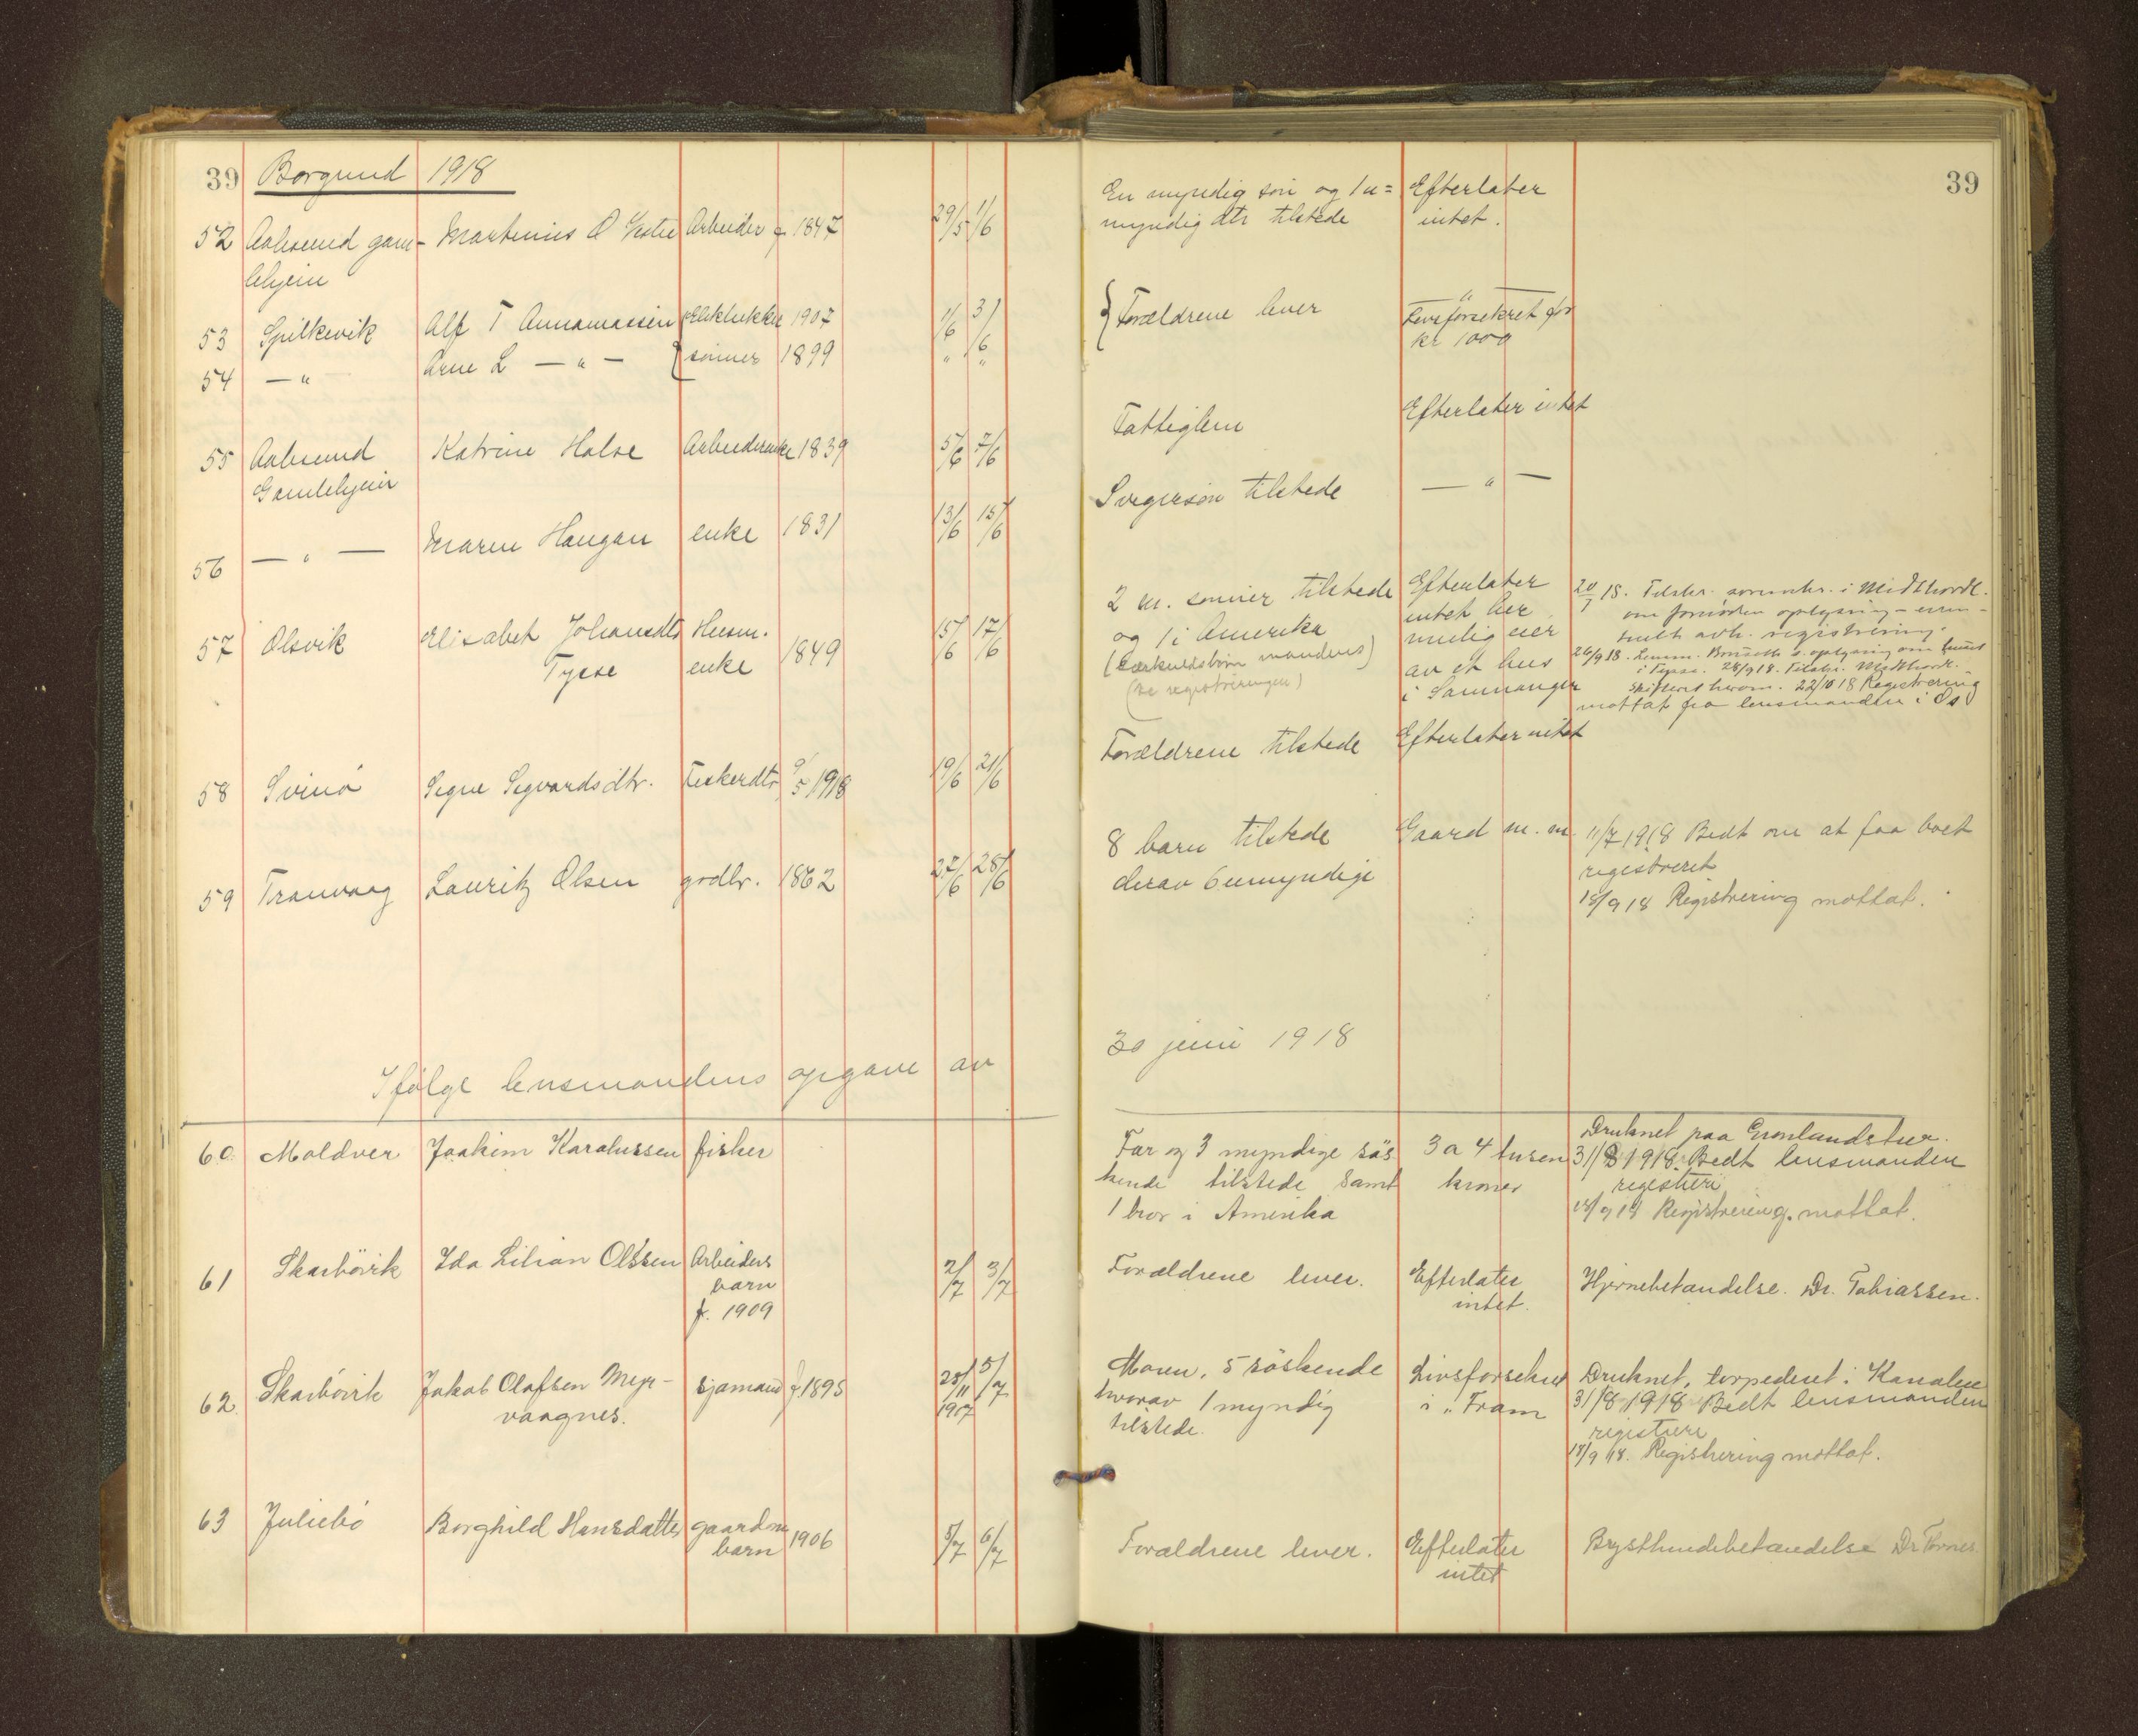 39 Borgund 1918
52 Aalesund gam- Martinius O Arbeider f 1847 29/5 1/6
lehjem
53 Spilkevik Alf T Annaniassen 1907 1/6 3/6
54 — " Arne L — " — sønner 1899 " "
55 Aalesund Katrine Halse Arbeiderenke 1839 5/6 7/6
Gamlehjem
56 — " — Maren Haugan enke 1831 13/6 15/6
57 Olsvik Elisabet Johansdtr Husm. 1849 15/6 17/6
Tysse enke
58 Svinö Signe Sigvardsdtr. Fiskerdtr 9/5 1918 19/6 21/6
59 Tranvaag Lauritz Olsen grdbr. 1862 27/6 28/6
Ifølge lensmandens opgave av
60 Moldver Joakim Karolussen fisker
61 Skarbövik Ida Lilian Olssen Arbeiders 2/7 3/7
barn
f. 1909
62 Skarbövik Jakob Olafsen Myr- Sjømand f. 1895 25/11 5/7
vaagnes. 1917
63 Juliebö Borghild Hansdatter gaardm 1906 5/7 6/7
barn
39
En myndig søn og 1 u= Efterlater
myndig dtr tilstede intet.
Forældrene lever "
Livsforsikret for
kr 1000
Fattiglem Efterlater intet
Svigersøn tilstede — " —
2 m. sønner tilstede Efterlater 20/7 18. Tilskr. sorenskr. i Midthordl.
og 1 i Amerika intet her om fornøden oplysning - even-
(særkuldsbørn mandens) mulig eier tuelt avh. registrering.
(se registreringen) av et hus 26/9 18. Lensm. oplysning om huset
i Samnanger i Tysse. 28/9 18. Tilskr. Midthordl.
Skifteret herom. 22/10 18 Registrering
mottat fra lensmanden i Os
Forældrene tilstede Efterlater intet
8 barn tilstede Gaard m. m. 11/7 1918 Bedt om at faa boet
derav 6 umyndige registreret
18/9 18 Registrering mottat.
30 juni 1918
Druknet paa Grønlandstur.
Far og 3 myndige søs 3 a 4 tusen 31/8 1918. Bedt lensmanden
kende tilstede samt kroner registrere
1 bror i Amerika 18/9 18 Registrering mottat.
Forældrene lever. Efterlater Hjernebetændelse. Dr. Tobiassen.
intet.
Moren, 5 søskende Livsforsikret Druknet, torpederet i Kanalen
hvorav 1 myndig i "Fram 31/8 1918 Bedt lensmanden
tilstede. registrere
18/9 18. Registrering mottat.
Forældrene lever. Efterlater Brysthindebetændelse Dr
intet